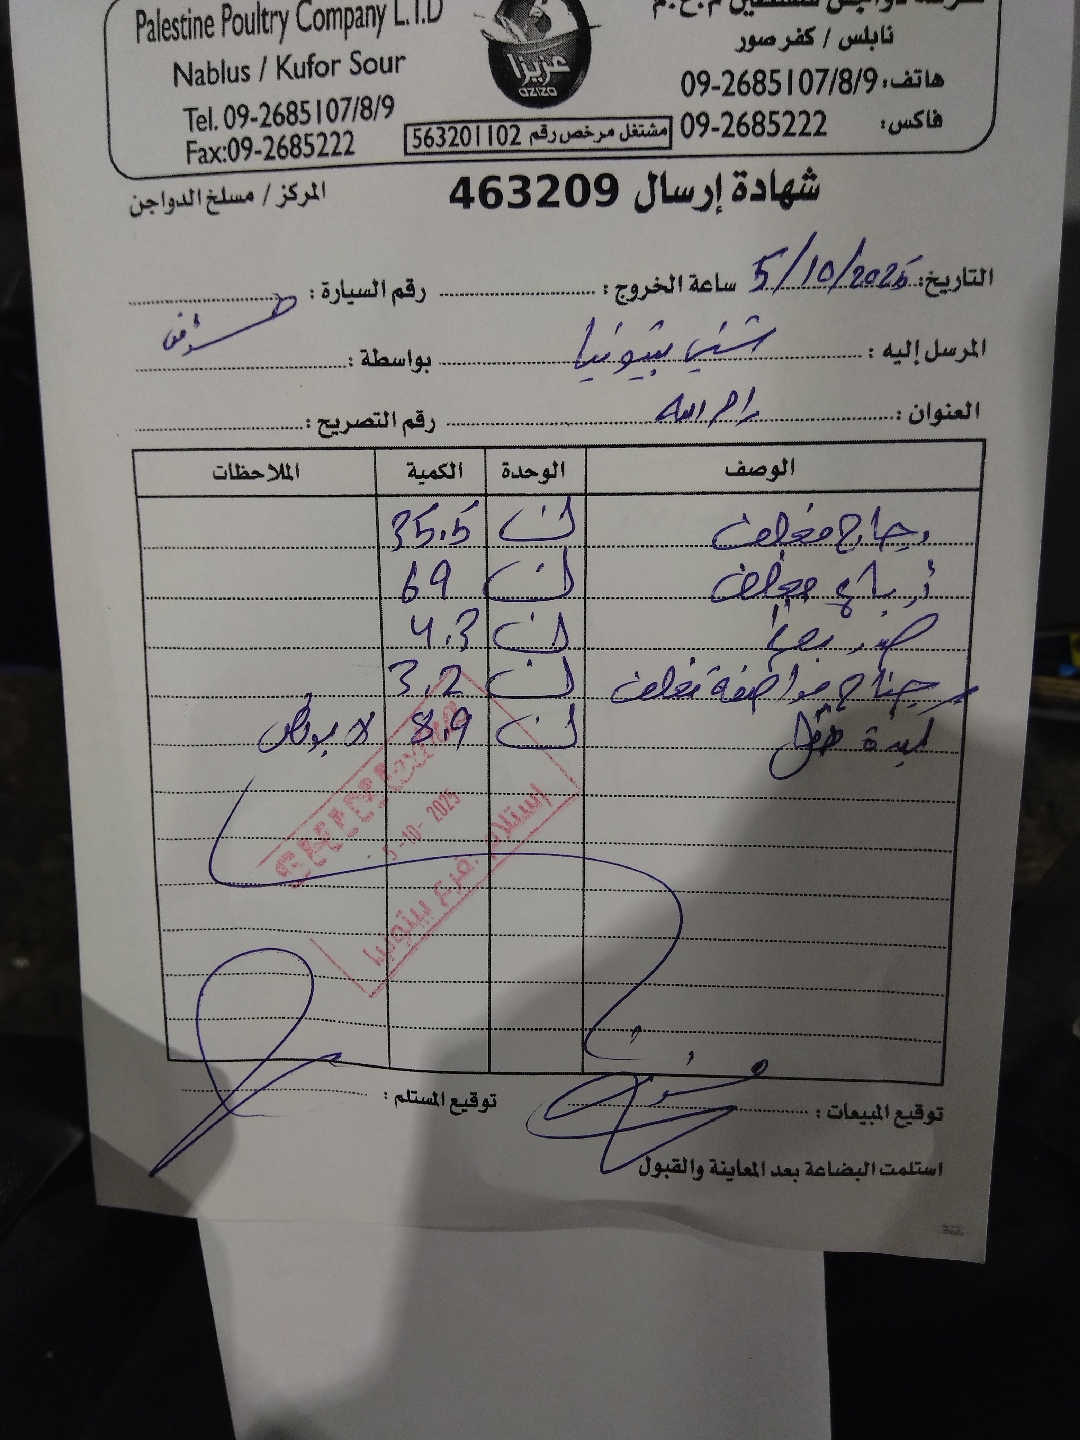 Palestine Poultry Company L.T.D
Nablus / Kufor Sour
Tel. 09-2685107/8/9
Fax:09-2685222
عزيزا
aziza
مشتغل مرخص رقم 563201102
نابلس / كفر صور
هاتف: 09-2685107/8/9
فاكس: 09-2685222
شهادة إرسال 463209
المركز / مسلخ الدواجن
التاريخ: 5/10/2025 ساعة الخروج: رقم السيارة:
المرسل إليه: بيتونيا بواسطة:
العنوان: رام الله رقم التصريح:
الوصف الوحدة الكمية الملاحظات
دجاج مغلف ك 35.5
أرباع مغلف ك 69
ك 4.3
جناح مغلف ك 3.2
كبدة ك 8.9
5-10-2025
إستلام فرع بيتونيا
توقيع المبيعات: توقيع المستلم:
استلمت البضاعة بعد المعاينة والقبول